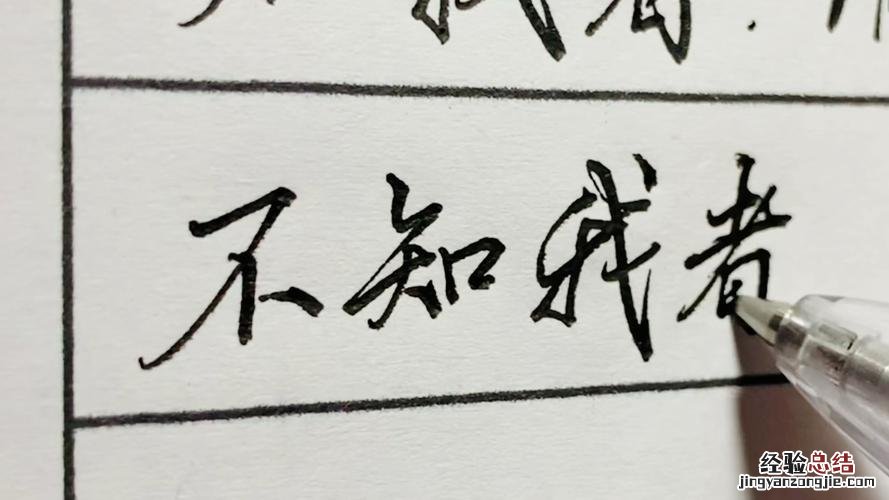 不知我者
经验总结
jingyanzongjie.com